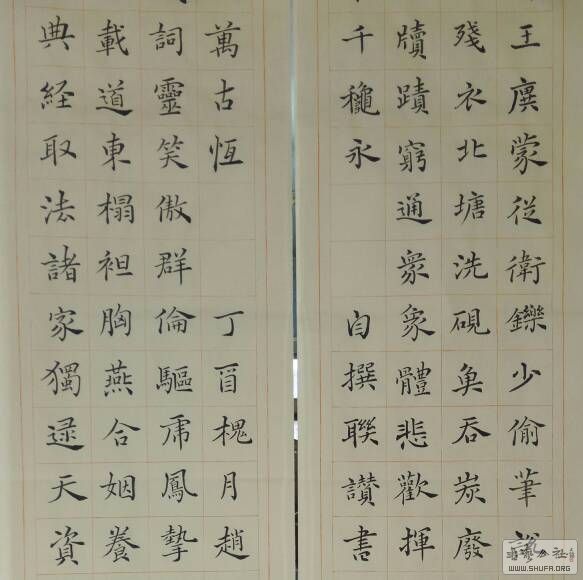 王廙蒙從衛鑠少偷筆
殘衣北塘洗硯魚吞炭廢
牘蹟窮通衆象體悲歡揮
千龝永
自撰聯讚書
萬古恆
丁酉槐月趙
詞靈笑傲群倫驅虎鳳摯
載道東榻袒胸燕合姻養
典経取法諸家獨逮天資
WWW.SHUFA.ORG